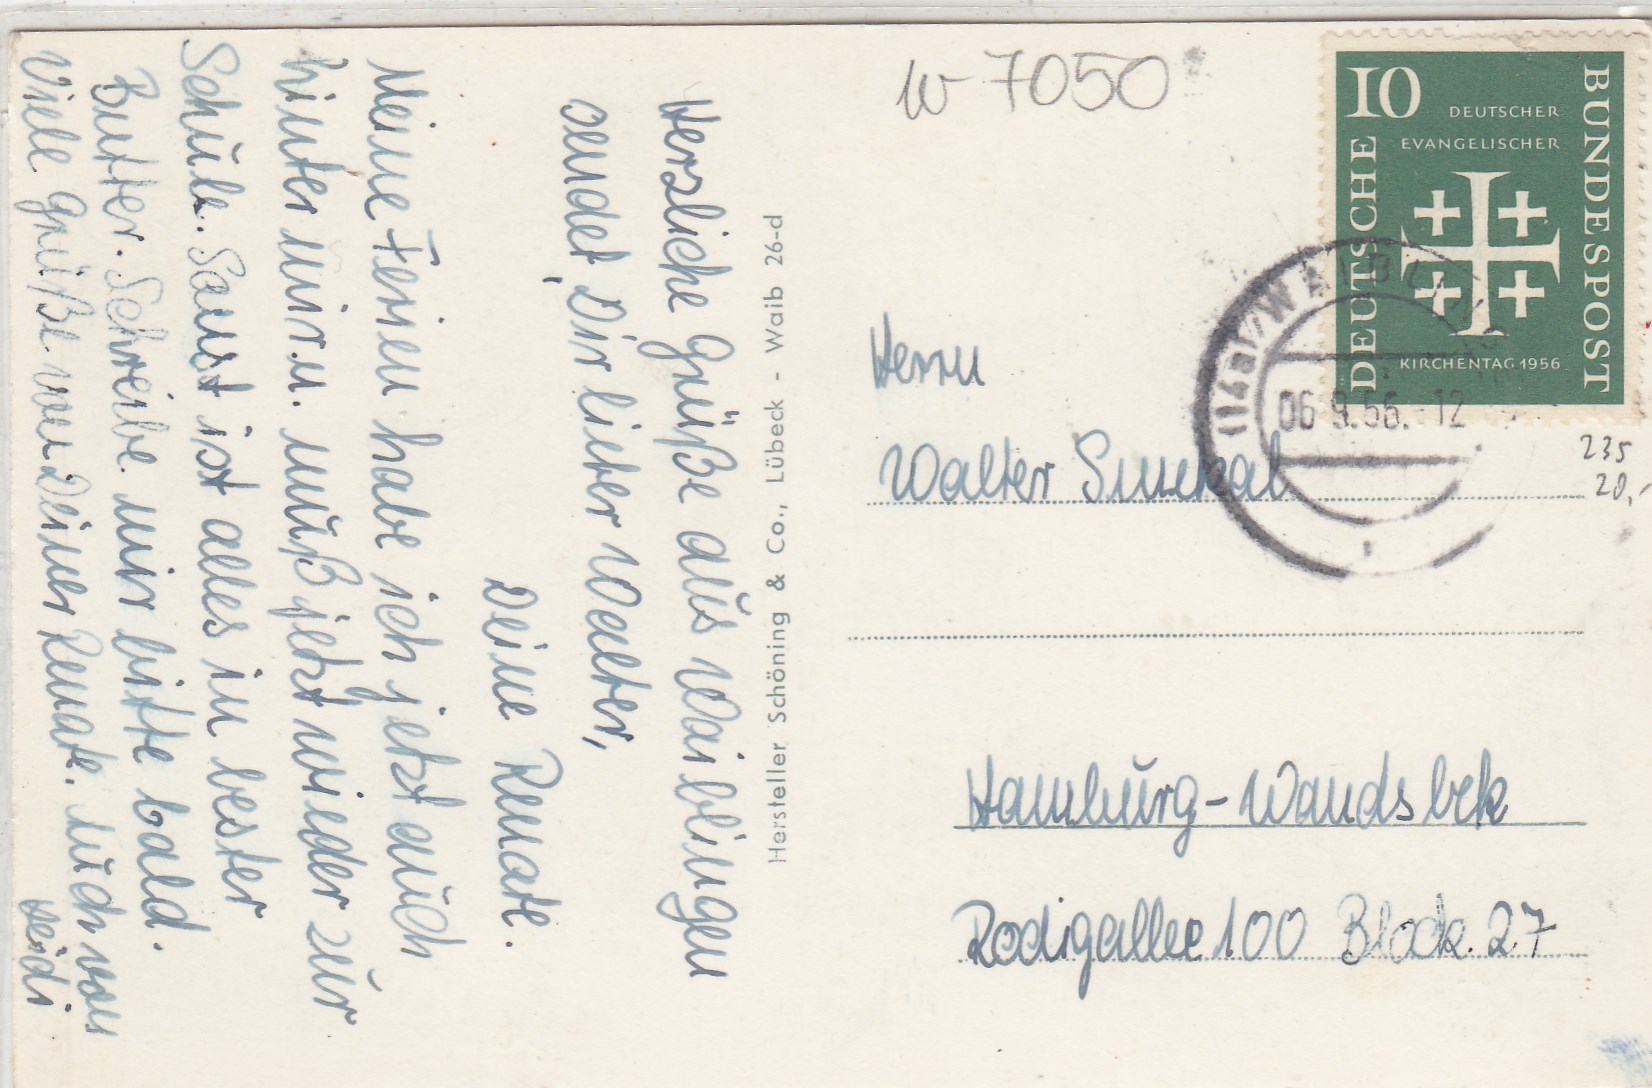 Herzliche Grüße aus Waiblingen
sendet Dir lieber Walter,
Deine Renate.
Meine Ferien habe ich jetzt auch
hinter mir u. muß jetzt wieder zur
Schule. Sonst ist alles in bester
Butter. Schreibe mir bitte bald.
Viele Grüße von Deiner Renate. Auch von
Heidi
Hersteller Schöning & Co., Lübeck - Waib 26-d
W 7050
10
DEUTSCHER
EVANGELISCHER
KIRCHENTAG 1956
DEUTSCHE
BUNDESPOST
(14a) WAIBLINGEN
06.9.56.-12
235
20,-
Herrn
Walter
Hamburg-Wandsbek
Rodigallee 100 Block. 27